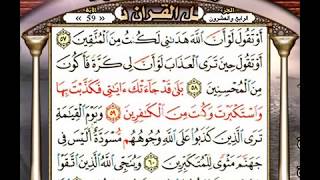 الرابع والعشرون
القرآن
59
أَوْ تَقُولَ لَوْ أَنَّ ٱللَّهَ هَدَىٰنِى لَكُنتُ مِنَ ٱلْمُتَّقِينَ ٥٧
أَوْ تَقُولَ حِينَ تَرَى ٱلْعَذَابَ لَوْ أَنَّ لِى كَرَّةً فَأَكُونَ
مِنَ ٱلْمُحْسِنِينَ ٥٨ بَلَىٰ قَدْ جَآءَتْكَ ءَايَٰتِى فَكَذَّبْتَ بِهَا
وَٱسْتَكْبَرْتَ وَكُنتَ مِنَ ٱلْكَٰفِرِينَ ٥٩ وَيَوْمَ ٱلْقِيَٰمَةِ
تَرَى ٱلَّذِينَ كَذَبُوا۟ عَلَى ٱللَّهِ وُجُوهُهُم مُّسْوَدَّةٌ أَلَيْسَ فِى
جَهَنَّمَ مَثْوًى لِّلْمُتَكَبِّرِينَ ٦٠ وَيُنَجِّى ٱللَّهُ ٱلَّذِينَ ٱتَّقَوْا۟